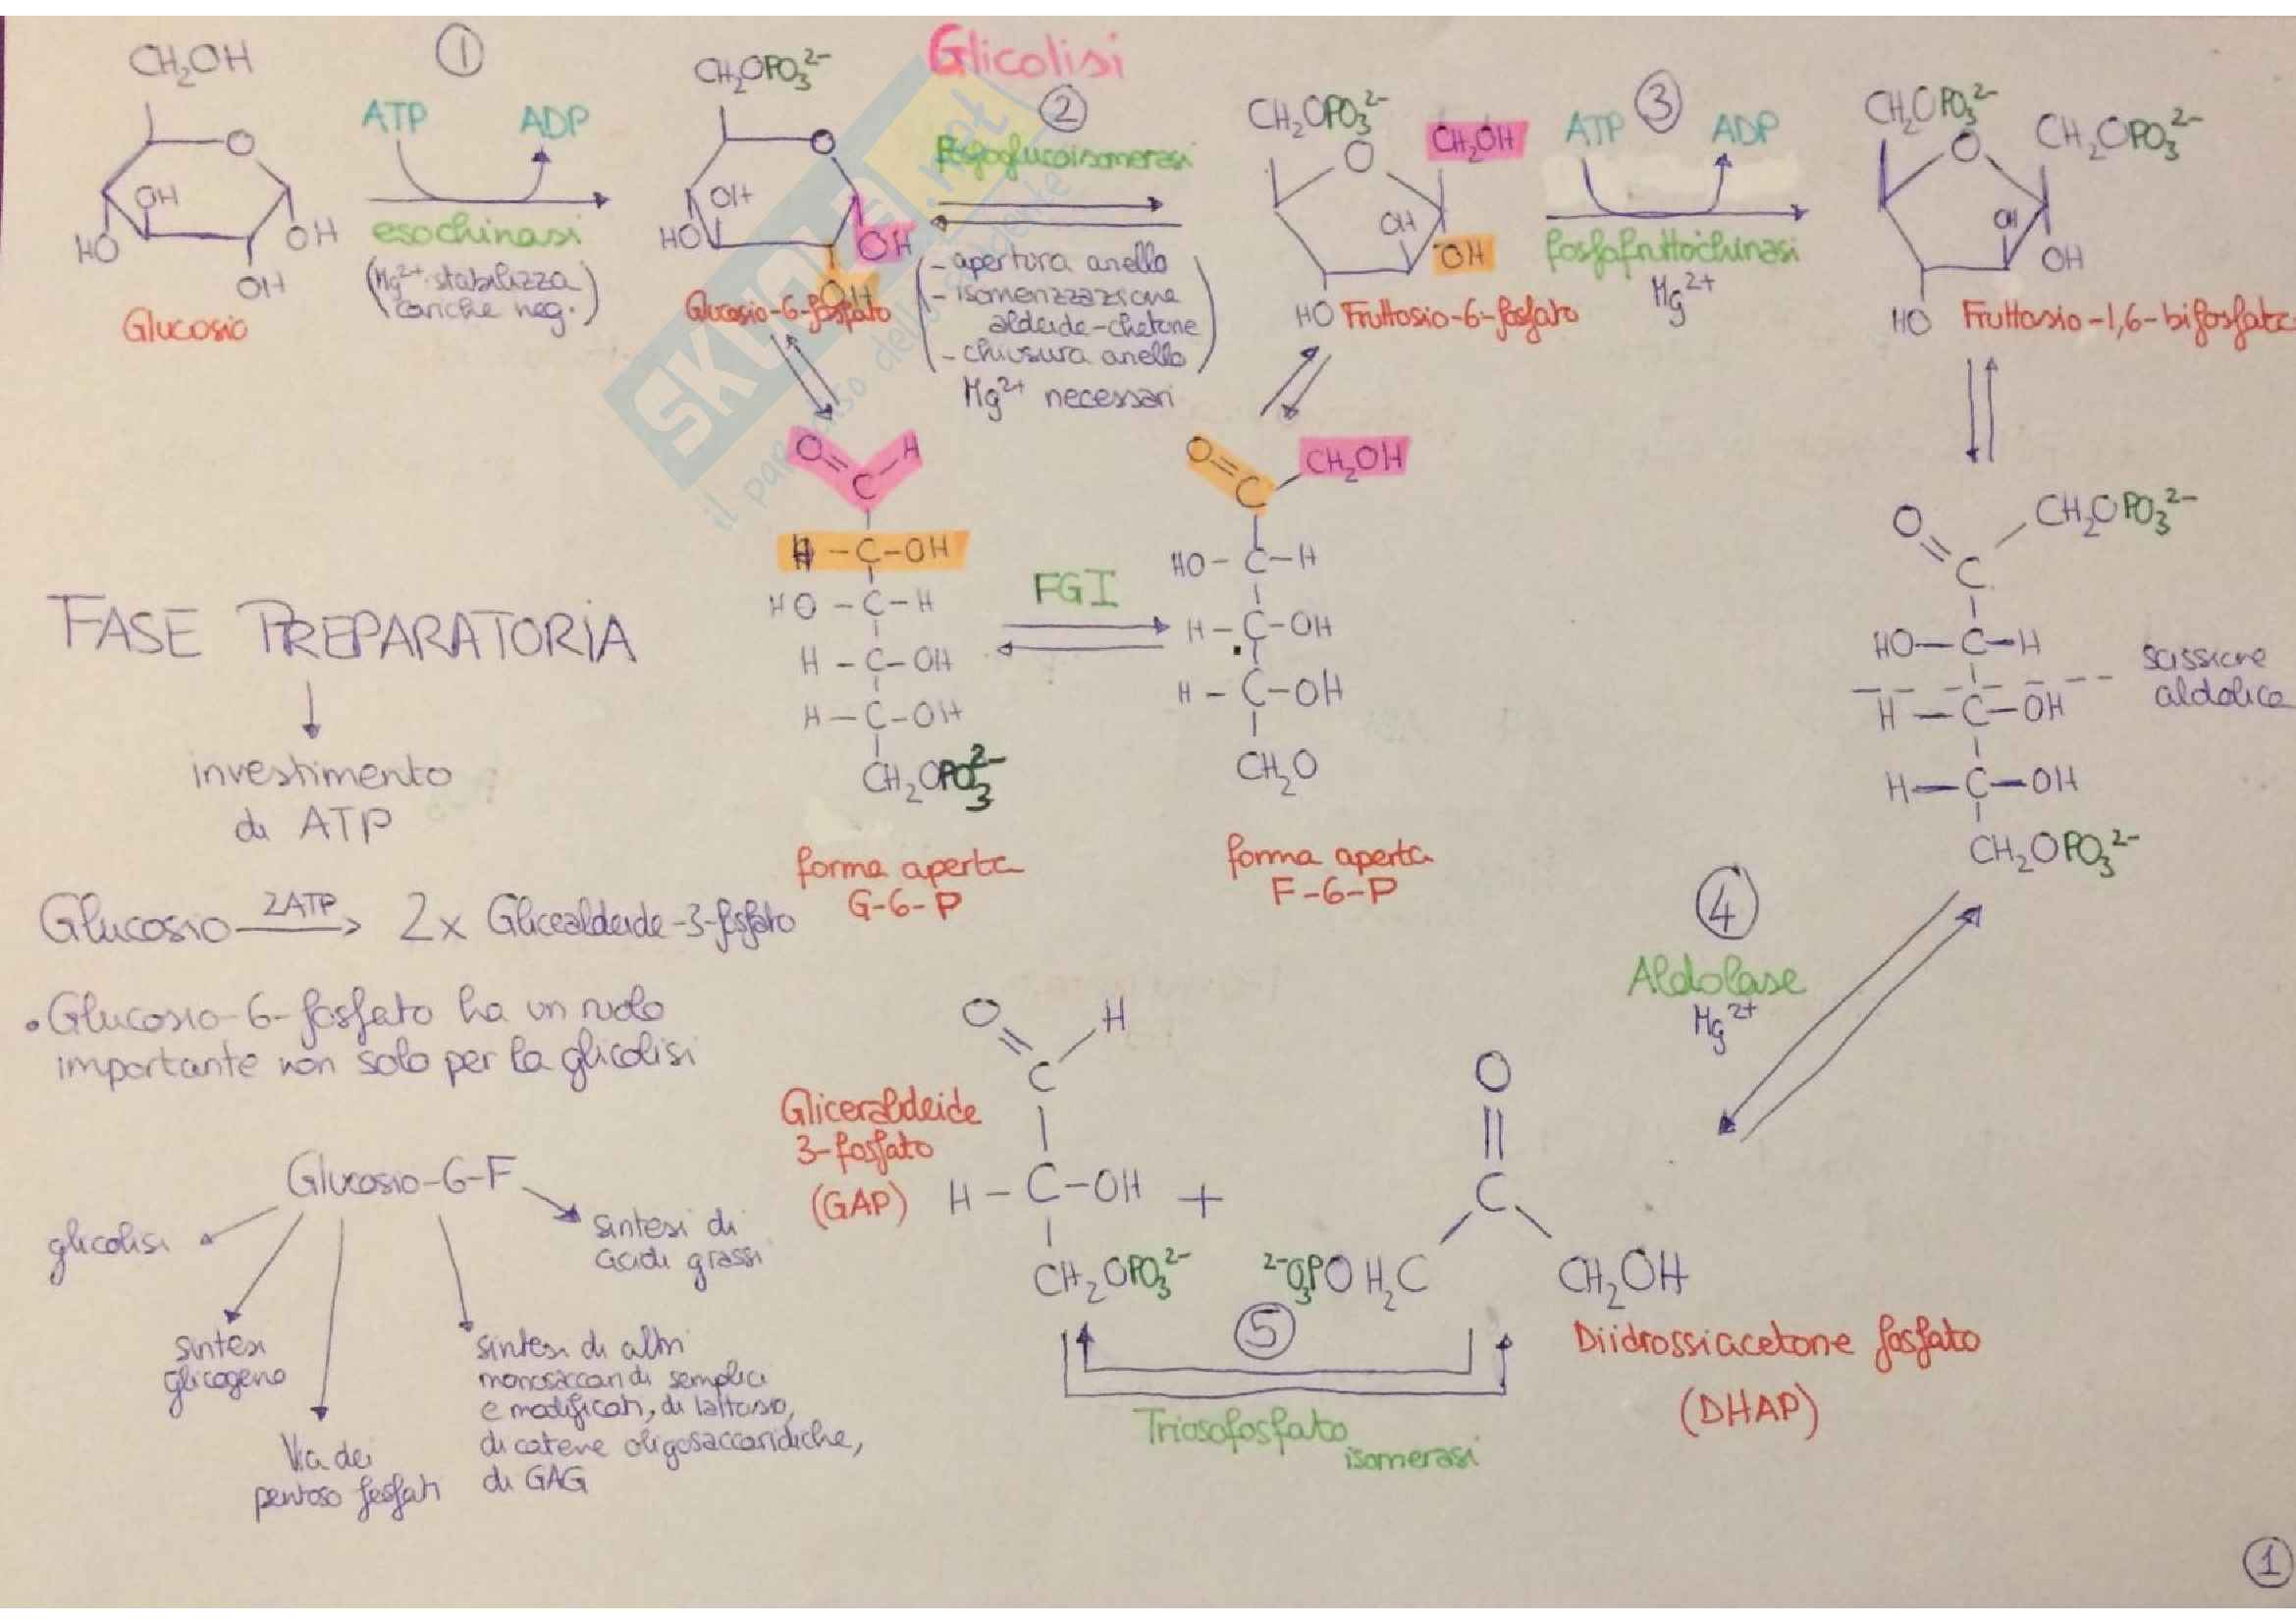 Glicolisi
①
CH₂OH
ATP
ADP
O
OH
HO
OH
OH
esochinasi
(Mg²⁺ stabilizza
cariche neg.)
Glucosio
CH₂OPO₃²⁻
O
OH
HO
OH
OH
Glucosio-6-fosfato
②
fosfoglucoisomerasi
- apertura anello
- isomerizzazione
aldeide-chetone
- chiusura anello
Mg²⁺ necessari
CH₂OPO₃²⁻
CH₂OH
O
OH
OH
HO
Fruttosio-6-fosfato
③
ATP
ADP
fosfofruttochinasi
Mg²⁺
CH₂OPO₃²⁻
O
CH₂OPO₃²⁻
OH
OH
HO
Fruttosio-1,6-bifosfato
O=C-H
H-C-OH
HO-C-H
H-C-OH
H-C-OH
CH₂OPO₃²⁻
forma aperta
G-6-P
FGI
O=C-CH₂OH
HO-C-H
H-C-OH
H-C-OH
CH₂O
forma aperta
F-6-P
O=C CH₂OPO₃²⁻
HO-C-H
scissione
aldolica
H-C-OH
H-C-OH
CH₂OPO₃²⁻
FASE PREPARATORIA
investimento
di ATP
Glucosio 2ATP 2x Glicealdeide-3-fosfato
• Glucosio-6-fosfato ha un ruolo
importante non solo per la glicolisi
Glucosio-6-F
glicolisi
sintesi
glicogeno
Via dei
pentoso fosfati
sintesi di altri
monosaccaridi semplici
e modificati, di lattosio,
di catene oligosaccaridiche,
di GAG
sintesi di
acidi grassi
④
Aldolase
Mg²⁺
Gliceraldeide
3-fosfato
(GAP)
O=C-H
H-C-OH
CH₂OPO₃²⁻
+
O
C
²⁻O₃POH₂C
CH₂OH
Diidrossiacetone fosfato
(DHAP)
⑤
Triosofosfato
isomerasi
①
SKUOLA.net